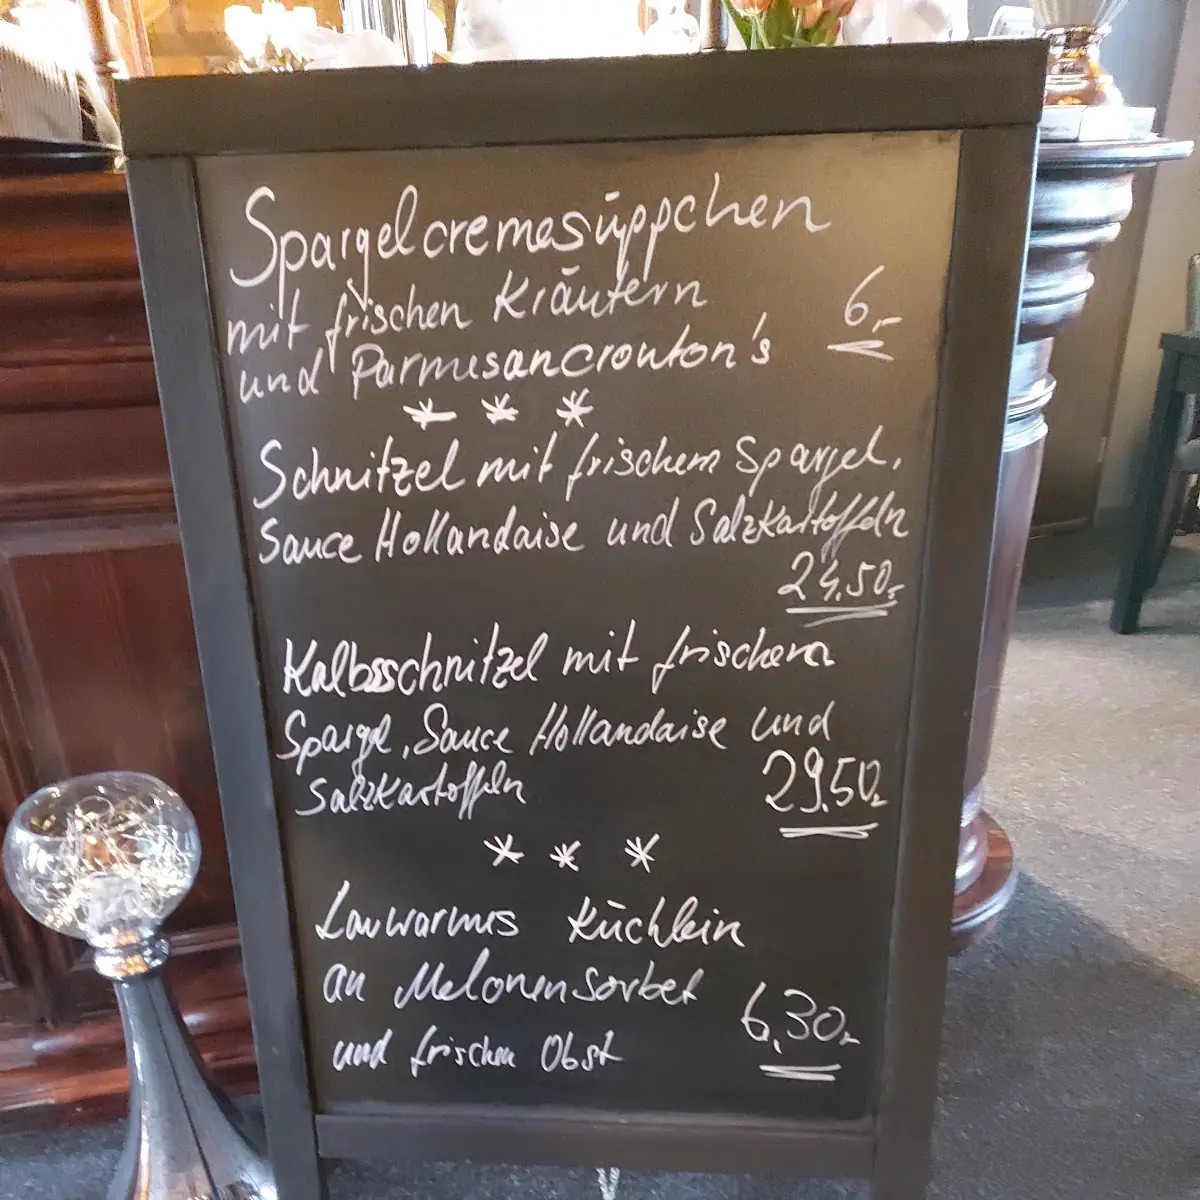 Spargelcremesüppchen
mit frischen Kräutern
und Parmesancrouton's
6,-
* * *
Schnitzel mit frischem Spargel,
Sauce Hollandaise und Salzkartoffeln
24,50,-
Kalbsschnitzel mit frischem
Spargel, Sauce Hollandaise und
Salzkartoffeln
29,50,-
* * *
Lauwarmes Küchlein
an Melonensorbet
und frischem Obst
6,30,-